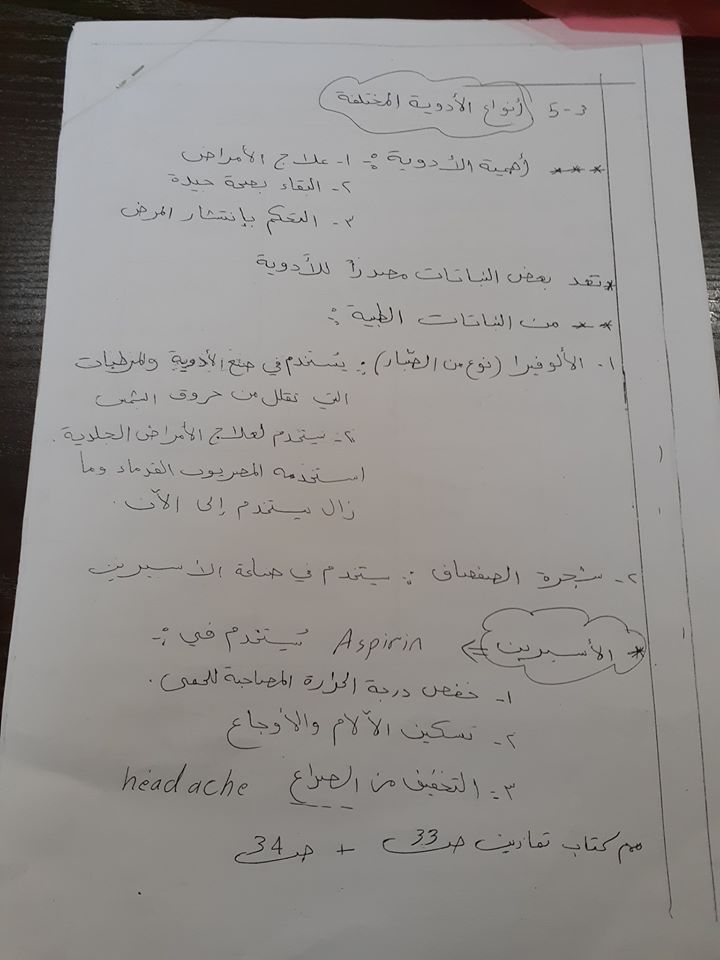 5-3 أنواع الأدوية المختلفة
*** أهمية الأدوية : ١- علاج الأمراض
٢- البقاء بصحة جيدة
٣- التحكم بإنتشار المرض
* تعد بعض النباتات مصدراً للأدوية
** من النباتات الطبية :
١- الألوفيرا (نوع من الصبّار) : يُستخدم في صنع الأدوية والمرطبات
التي تقلل من حروق الشمس
٢- يستخدم لعلاج الأمراض الجلدية .
استخدمه المصريون القدماء وما
زال يستخدم إلى الآن .
٢- شجرة الصفصاف : يستخدم في صناعة الأسبرين
* الأسبرين <= Aspirin يُستخدم في :-
١- خفض درجة الحرارة المصاحبة للحمى .
٢- تسكين الآلام والأوجاع
٣- التخفيف من الصداع headache
كتاب تمارين صـ 33 + صـ 34